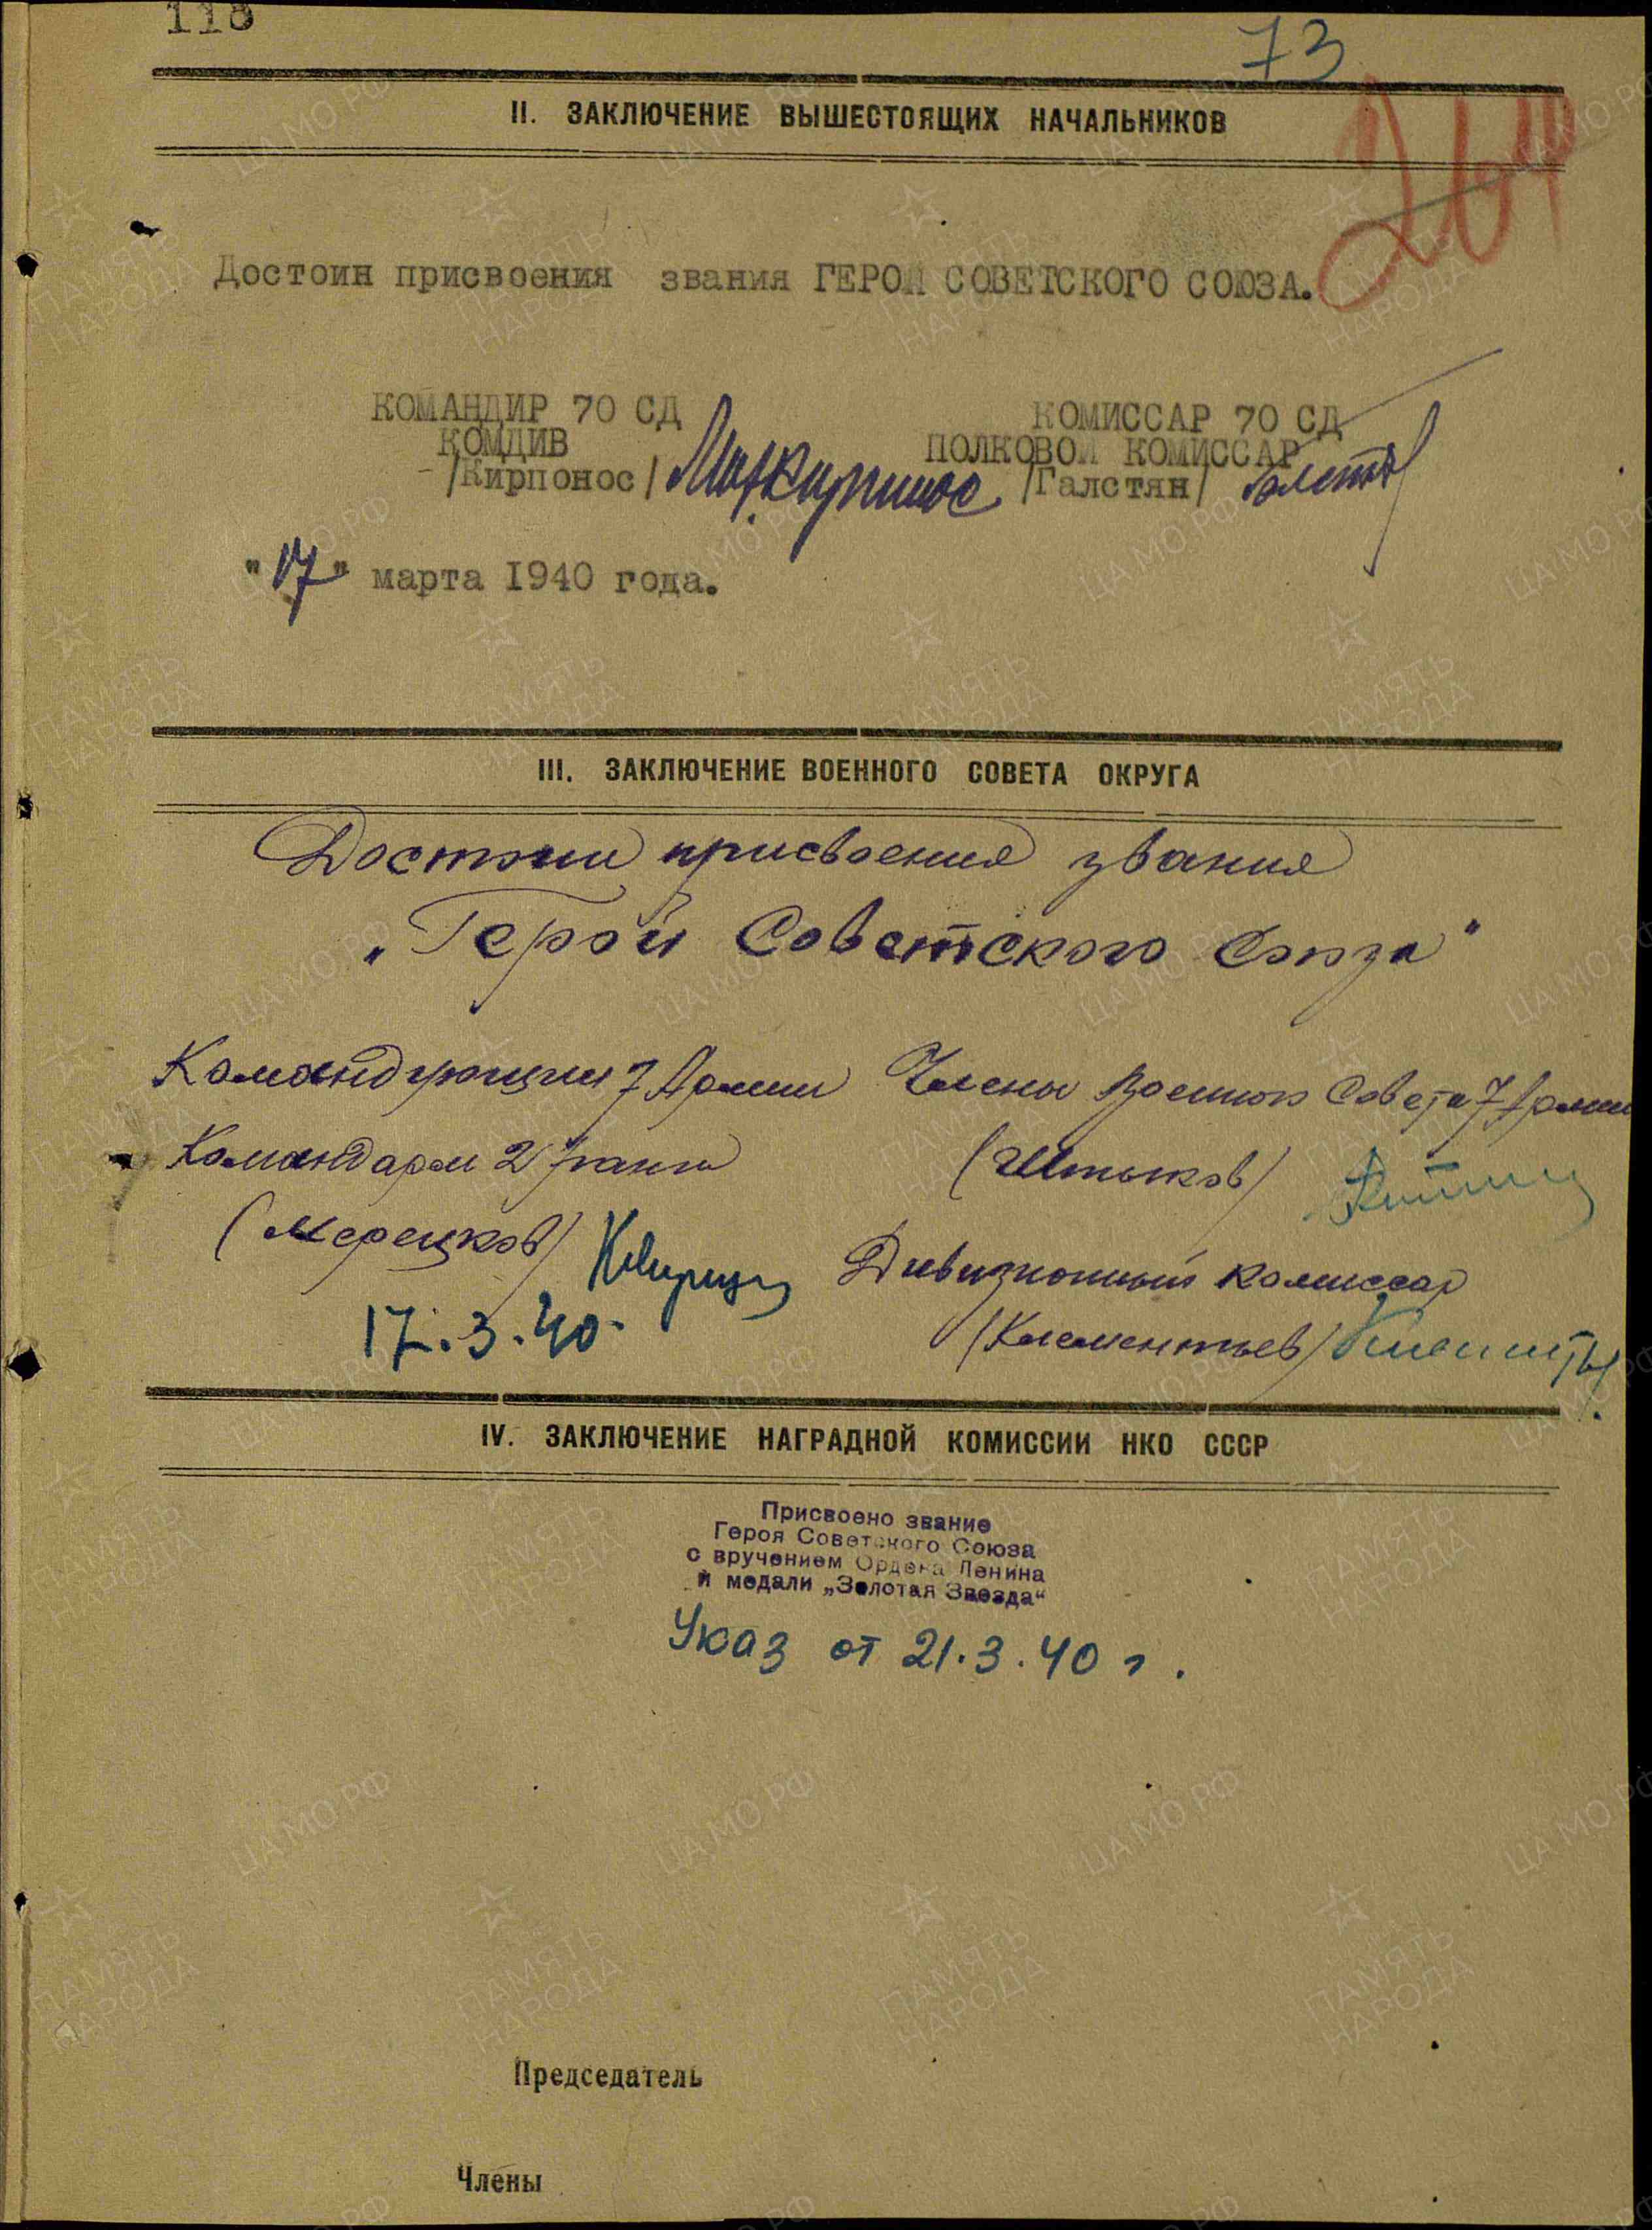 118
73
264
II. ЗАКЛЮЧЕНИЕ ВЫШЕСТОЯЩИХ НАЧАЛЬНИКОВ
Достоин присвоения звания ГЕРОЙ СОВЕТСКОГО СОЮЗА.
КОМАНДИР 70 СД КОМИССАР 70 СД
КОМДИВ ПОЛКОВОЙ КОМИССАР
/Кирпонос/ /Галстян/
"17" марта 1940 года.
III. ЗАКЛЮЧЕНИЕ ВОЕННОГО СОВЕТА ОКРУГА
Достоин присвоения звания
„Герой Советского Союза"
Командующий 7 Армии Члены Военного Совета 7 Армии
Командарм 2 ранга (Штыков)
(Мерецков) Дивизионный комиссар
17.3.40. (Клементьев)
IV. ЗАКЛЮЧЕНИЕ НАГРАДНОЙ КОМИССИИ НКО СССР
Присвоено звание
Героя Советского Союза
с вручением Ордена Ленина
и медали „Золотая Звезда“
Указ от 21.3.40 г.
Председатель
Члены
ЦА МО РФ
ПАМЯТЬ
НАРОДА